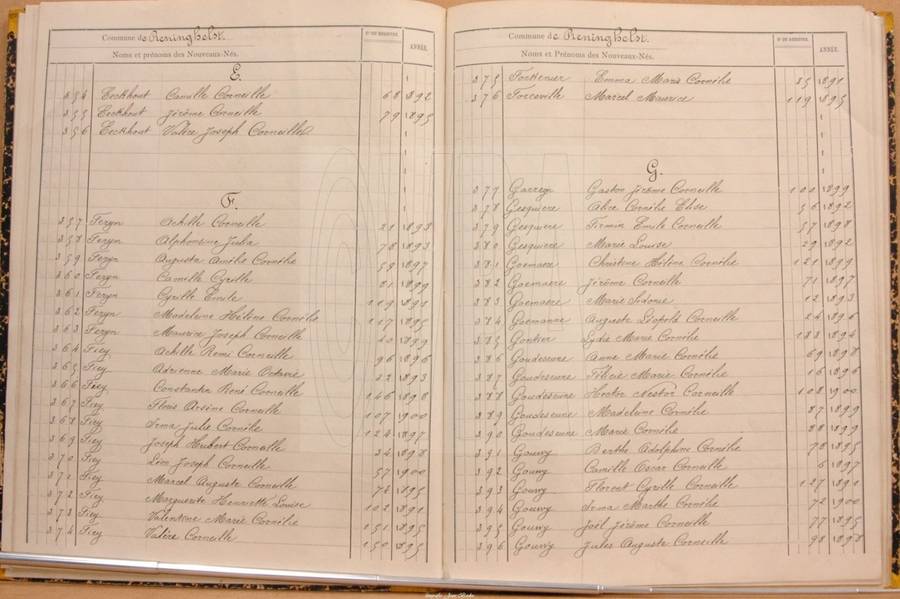 Commune de Reninghelst. N° DE REGISTRE. ANNÉE.
Noms et prénoms des Nouveaux-Nés.
E.
354 Eeckhout Camille Corneille 68 1892
355 Eeckhout Jérôme Corneille 79 1895
356 Eeckhout Valère Joseph Corneille
F.
357 Feryn Achille Corneille 21 1898
358 Feryn Alphonsine Julia 78 1893
359 Feryn Augusta Amélie Cornélie 59 1897
360 Feryn Camille Cyrille 81 1899
361 Feryn Cyrille Emile 119 1891
362 Feryn Madeleine Hélène Cornélie 117 1895
363 Feryn Maurice Joseph Corneille 40 1899
364 Fiey Achille Remi Corneille 96 1896
365 Fiey Adrienne Marie Octavie 22 1893
366 Fiey Constantin René Corneille 146 1898
367 Fiey Floris Arsène Corneille 107 1900
368 Fiey Irma Julie Cornélie 124 1897
369 Fiey Joseph Hubert Corneille 34 1898
370 Fiey Léon Joseph Corneille 57 1900
371 Fiey Marcel Auguste Corneille 74 1895
372 Fiey Marguerite Henriette Louise 102 1891
373 Fiey Valentine Marie Cornélie 151 1895
374 Fiey Valère Corneille 150 1895
Commune de Reninghelst. N° DE REGISTRE. ANNÉE.
Noms et Prénoms des Nouveaux-Nés.
375 Emma Marie Cornélie 35 1891
376 Forceville Marcel Maurice 119 1895
G.
377 Garreyn Gaston Jérôme Corneille 100 1899
378 Gesquiere Alice Cornélie Elise 56 1892
379 Gesquiere Firmin Emile Corneille 57 1898
380 Gesquiere Marie Louise 29 1892
381 Goemaere Christine Hélène Cornélie 121 1899
382 Goemaere Jérôme Corneille 71 1897
383 Goemaere Marie Sidonie 12 1893
384 Goemaere Auguste Léopold Corneille 24 1896
385 Gontier Lydie Marie Cornélie 133 1894
386 Goudeseune Anne Marie Cornélie 69 1898
387 Goudeseune Félicie Marie Cornélie 16 1896
388 Goudeseune Hector Nestor Corneille 108 1900
389 Goudeseune Madeleine Cornélie 87 1899
390 Goudeseune Marie Cornélie 88 1899
391 Gouwy Berthe Adolphine Cornélie 78 1895
392 Gouwy Camille Oscar Corneille 6 1897
393 Gouwy Florent Cyrille Corneille 127 1891
394 Gouwy Irma Marthe Cornélie 72 1900
395 Gouwy Joël Jérôme Corneille 77 1895
396 Gouwy Jules Auguste Corneille 98 1898